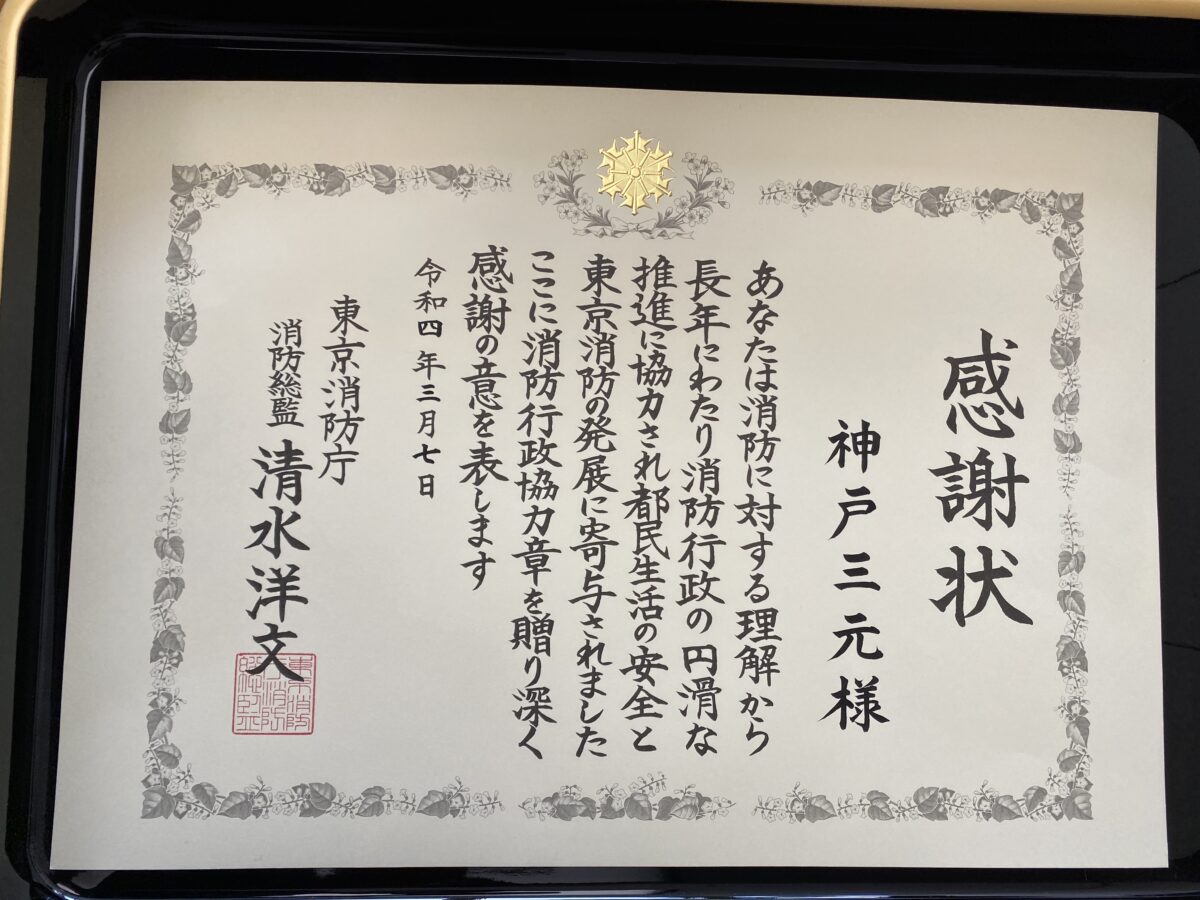 感謝状
神戸三元様
あなたは消防に対する理解から
長年にわたり消防行政の円滑な
推進に協力され都民生活の安全と
東京消防の発展に寄与されました
ここに消防行政協力章を贈り深く
感謝の意を表します
令和四年三月七日
東京消防庁
消防総監 清水洋文